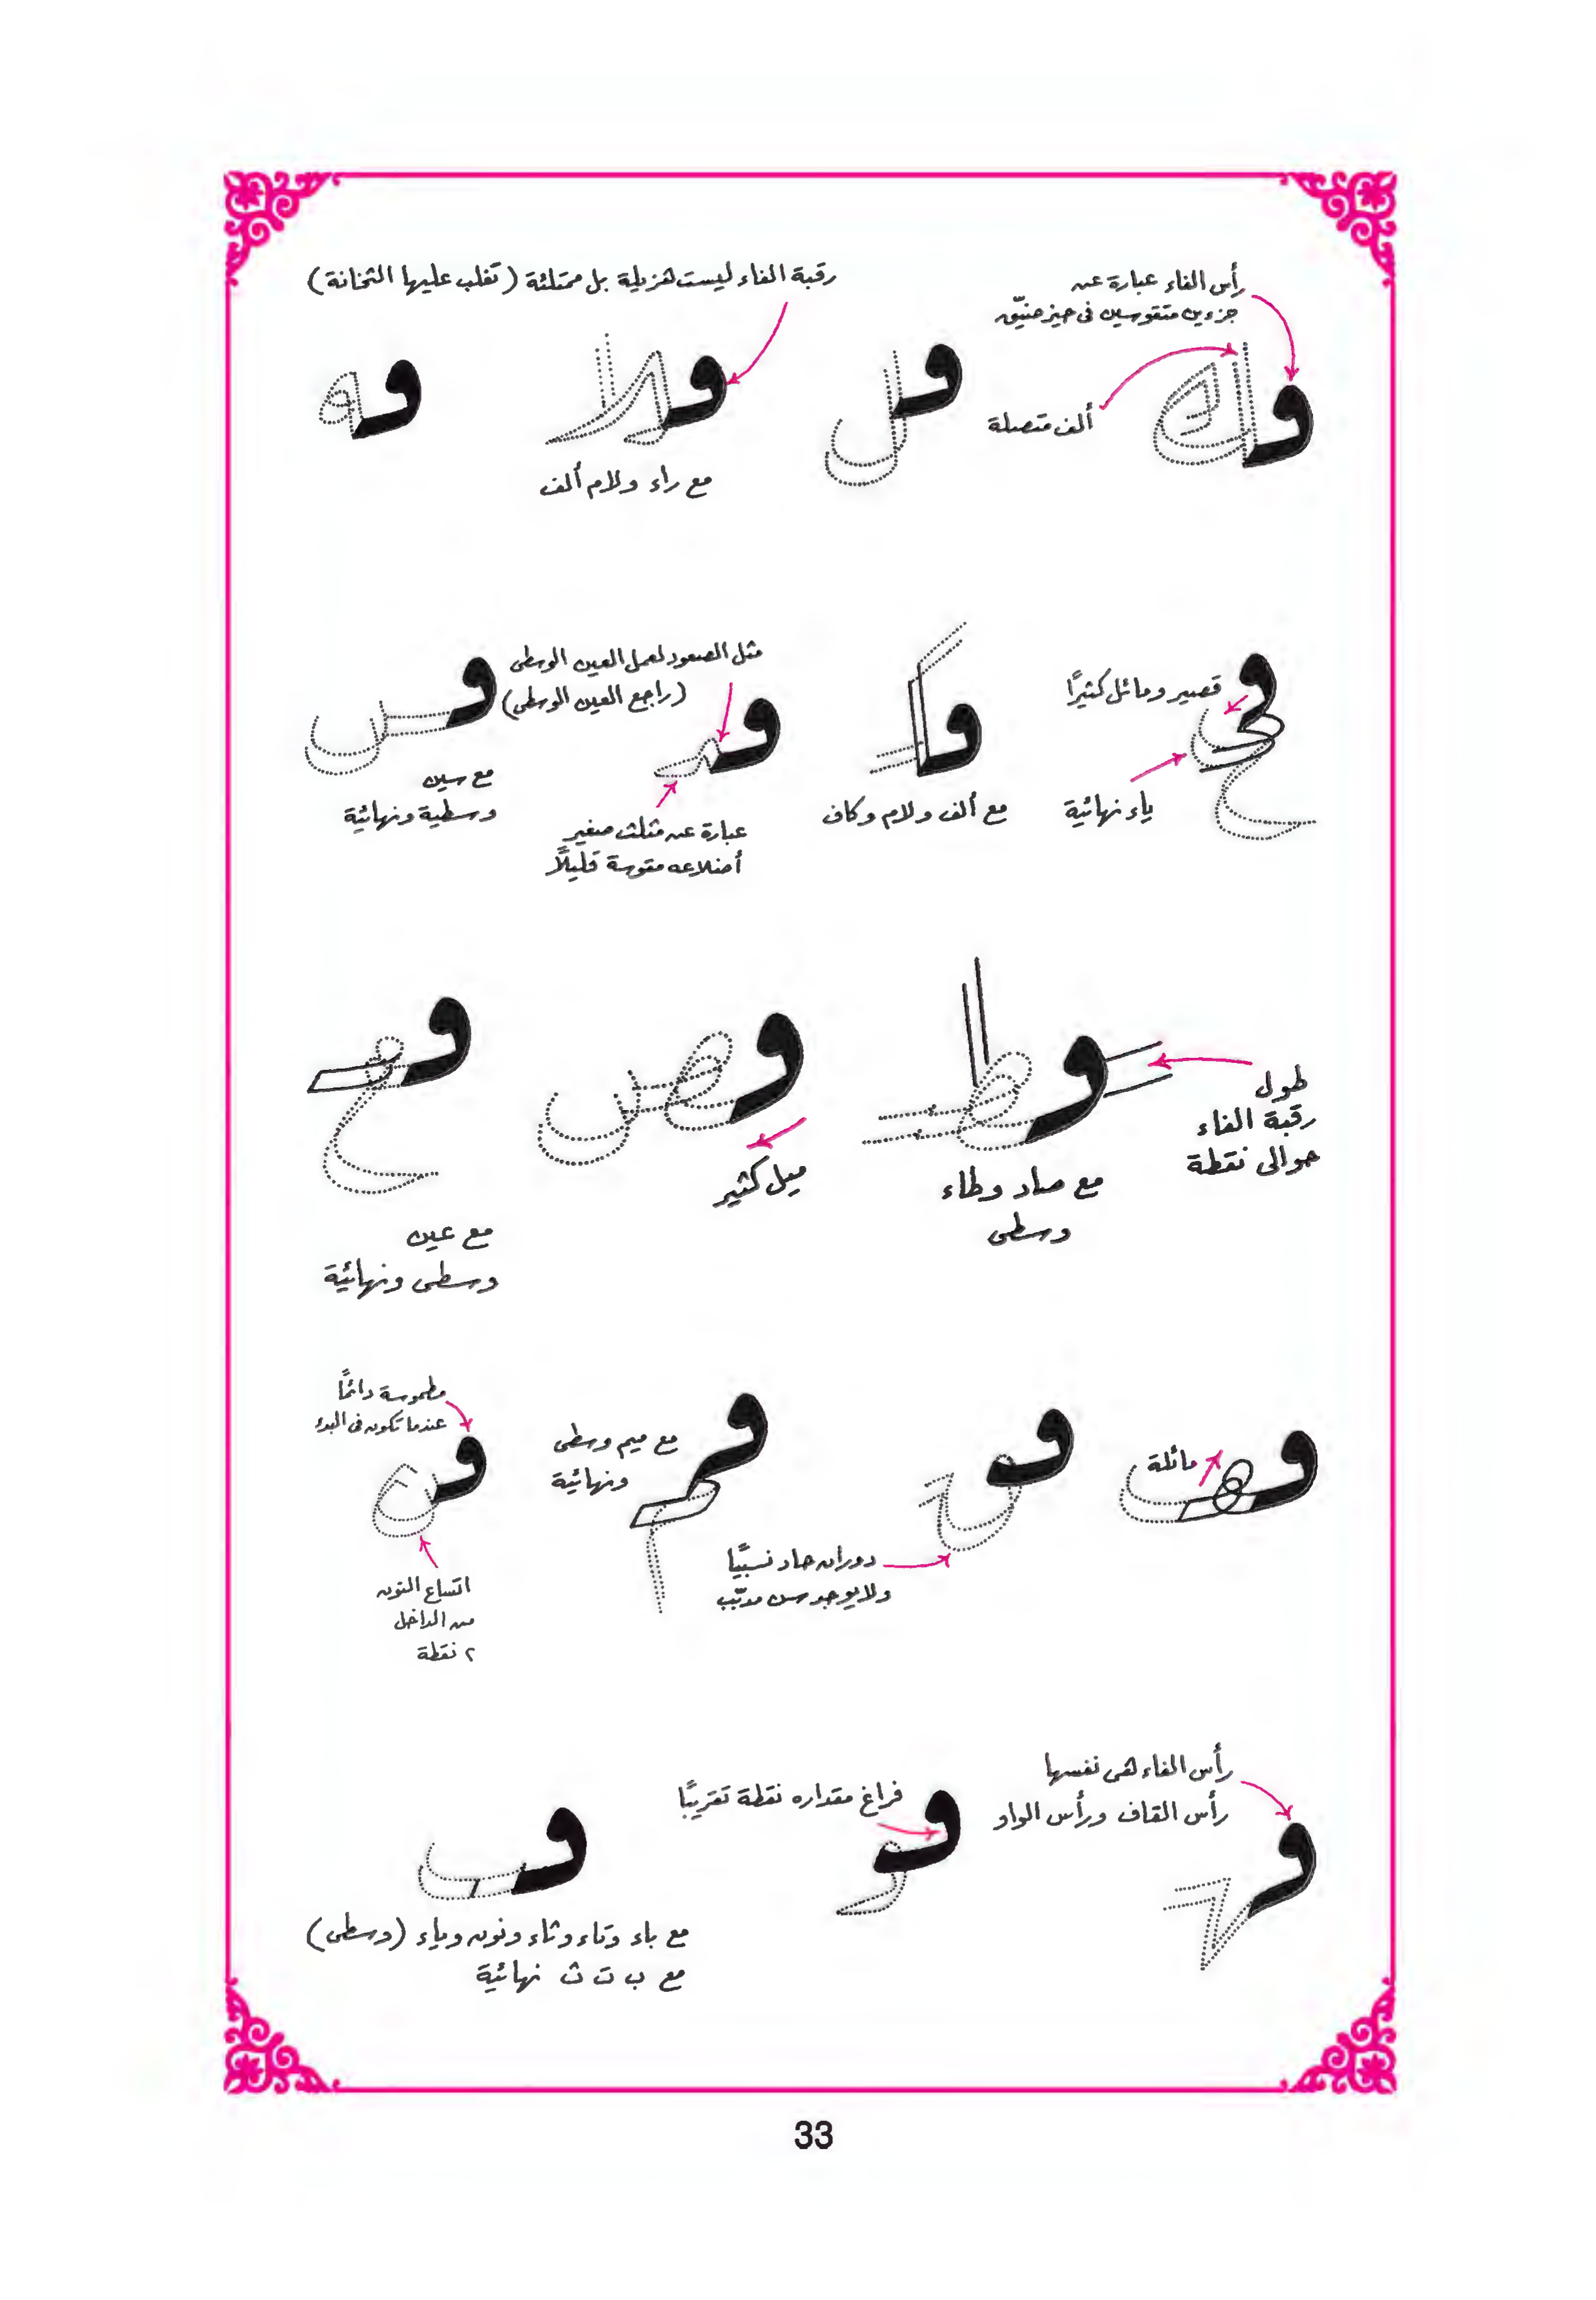 رأس الفاء عبارة عن
جزءين متقوسين فى حيز ضيّق
رقبة الفاء ليست هزيلة بل ممتلئة (تغلب عليها الثخانة)
ألف متصلة
مع راء ولام ألف
قصير ومائل كثيرًا
ياء نهائية
مع ألف ولام وكاف
مثل الصعود لعمل العين الوسطى
(راجع العين الوسطى)
عبارة عن مثلث صغير
أضلاعه مقوسة قليلًا
مع سين
وسطية ونهائية
طول
رقبة الفاء
حوالى نقطة
مع صاد وطاء
وسطى
ميل كثير
مع عين
وسطى ونهائية
مائلة
دوران حاد نسبيًا
ولا يوجد سن مدبّب
مع ميم وسطى
ونهائية
مطموسة دائمًا
عندما تكون فى البدء
اتساع النون
من الداخل
٢ نقطة
رأس الفاء هى نفسها
رأس القاف ورأس الواو
فراغ مقداره نقطة تقريبًا
مع باء وتاء وثاء ونون وياء (وسطى)
مع ب ت ث نهائية
33